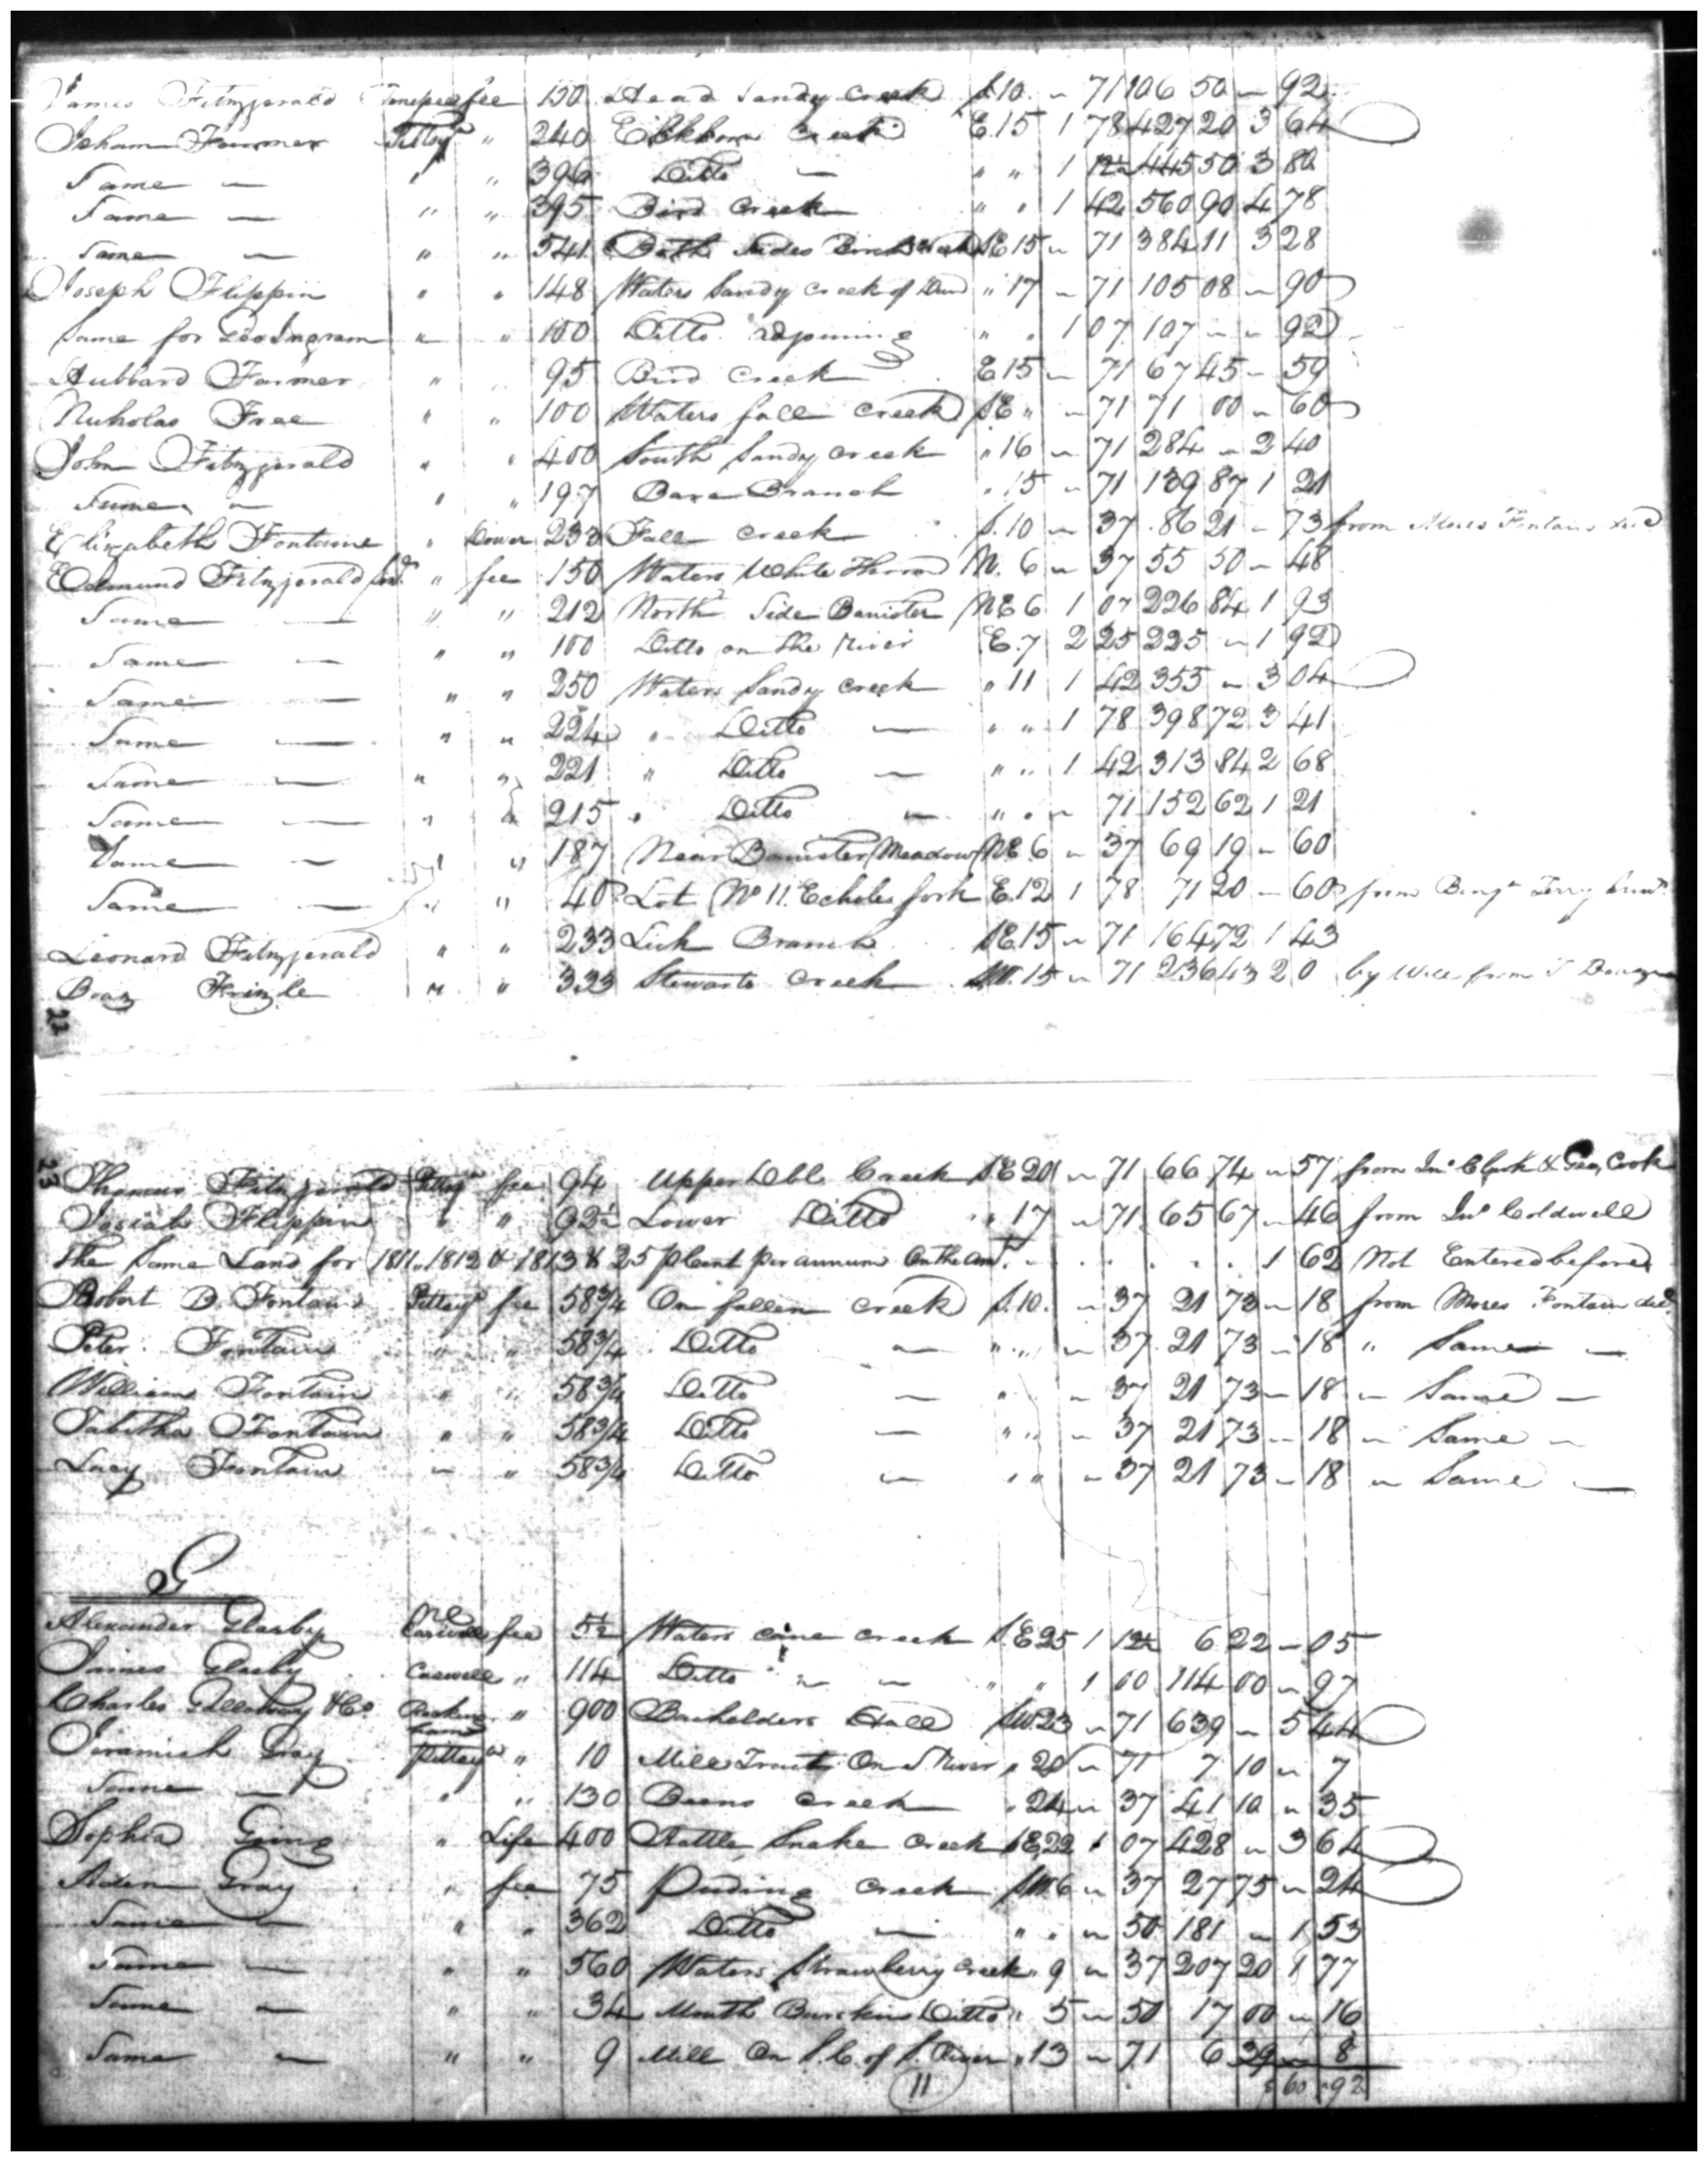 James Fitzgerald Tenessee fee 150 Head Sandy Creek S.10 " 71 106 50 " 92
Isham Farmer Pittsya " 240 Elkhorn Creek E.15 1 78 427 20 3 64
Same — " " 396 Ditto — " " 1 12½ 445 50 3 80
Same — " " 395 Bird Creek " " 1 42 560 90 4 78
Same — " " 541 Both Sides Birch Creek SE 15 " 71 384 11 3 28
Joseph Flippin " " 148 Waters Sandy Creek of Dan " 17 " 71 105 08 " 90
Same for Geo Ingram " " 100 Ditto adjoining " " 1 07 107 " " 92
Hubbard Farmer " " 95 Bird Creek E 15 " 71 67 45 " 59
Nicholas Free " " 100 Waters fall Creek SE " " 71 71 00 " 60
John Fitzgerald " " 400 South Sandy Creek " 16 " 71 284 " 2 40
Same " " " 197 Bare Branch " 15 " 71 139 87 1 21
Elizabeth Fontaine " Dower 233 Fall Creek S.10 " 37 86 21 " 73 from Moses Fontain decd
Edmund Fitzgerald " fee 150 Waters White Thorn N. 6 " 37 55 50 " 48
Same — " " 212 North Side Banister NE 6 1 07 226 84 1 93
Same — " " 100 Ditto on the River E. 7 2 25 225 " 1 92
Same — " " 250 Waters Sandy Creek " 11 1 42 355 " 3 04
Same — " " 224 " Ditto — " " 1 78 398 72 3 41
Same — " " 221 " Ditto — " " 1 42 313 84 2 68
Same — " " 215 " Ditto — " " " 71 152 62 1 21
Same — " " 187 Near Banister Meadow NE 6 " 37 69 19 " 60
Same — " " 40 Lot No 11 Echoles fork E.12 1 78 71 20 " 60 from Benja Terry
Leonard Fitzgerald " " 233 Lick Branch SE.15 " 71 164 72 1 43
Boaz " " 333 Stewarts Creek SW.15 " 71 236 43 2 0 by Will from
22
23
Thomas Fitzgerald Pittsya fee 94 Upper Dble Creek SE 20 " 71 66 74 " 57 from Jno Clark & Geo Cook
Josiah Flippin " " 92½ Lower Ditto " 17 " 71 65 67 " 46 from Jno Coldwell
The Same Land for 1811, 1812 & 1813 & 25 pCent per annum On the amt 1 62 Not Entered before
Robert D. Fontain Pittsya fee 58¾ On fallen Creek S.10. " 37 21 73 " 18 from Moses Fontain decd
Peter Fontain " " 58¾ Ditto — " " " 37 21 73 " 18 " Same —
William Fontain " " 58¾ Ditto — " " " 37 21 73 " 18 " Same —
Tabitha Fontain " " 58¾ Ditto — " " " 37 21 73 " 18 " Same —
Lucy Fontain " " 58¾ Ditto — " " " 37 21 73 " 18 " Same —
G
Alexander Glasby Caswell fee 5½ Waters cane Creek S.E 25 1 12½ 6 22 " 05
James Glasby Caswell " 114 Ditto " — " " 1 00 114 00 " 97
Charles Galloway &Co. " 900 Hall SW.23 " 71 639 " 5 44
Jeramiah Gray Pittsya " 10 Mill Tract On S. River " 20 " 71 7 10 " 7
Same — " " 130 Beens Creek " 24 " 37 41 10 " 35
Sophia " Life 400 Rattle Snake Creek SE.22 1 07 428 " 3 64
Aden Gray " fee 75 Puding Creek SW.6 " 37 27 75 " 24
Same — " " 362 Ditto — " " " 50 181 " 1 53
Same — " " 560 Waters Strawberry Creek " 9 " 37 207 20 1 77
Same — " " 34 Mouth Ditto " 5 " 50 17 00 " 16
Same — " " 9 Mill On S.C. of S. River " 13 " 71 6 39 " 8
11 60 92